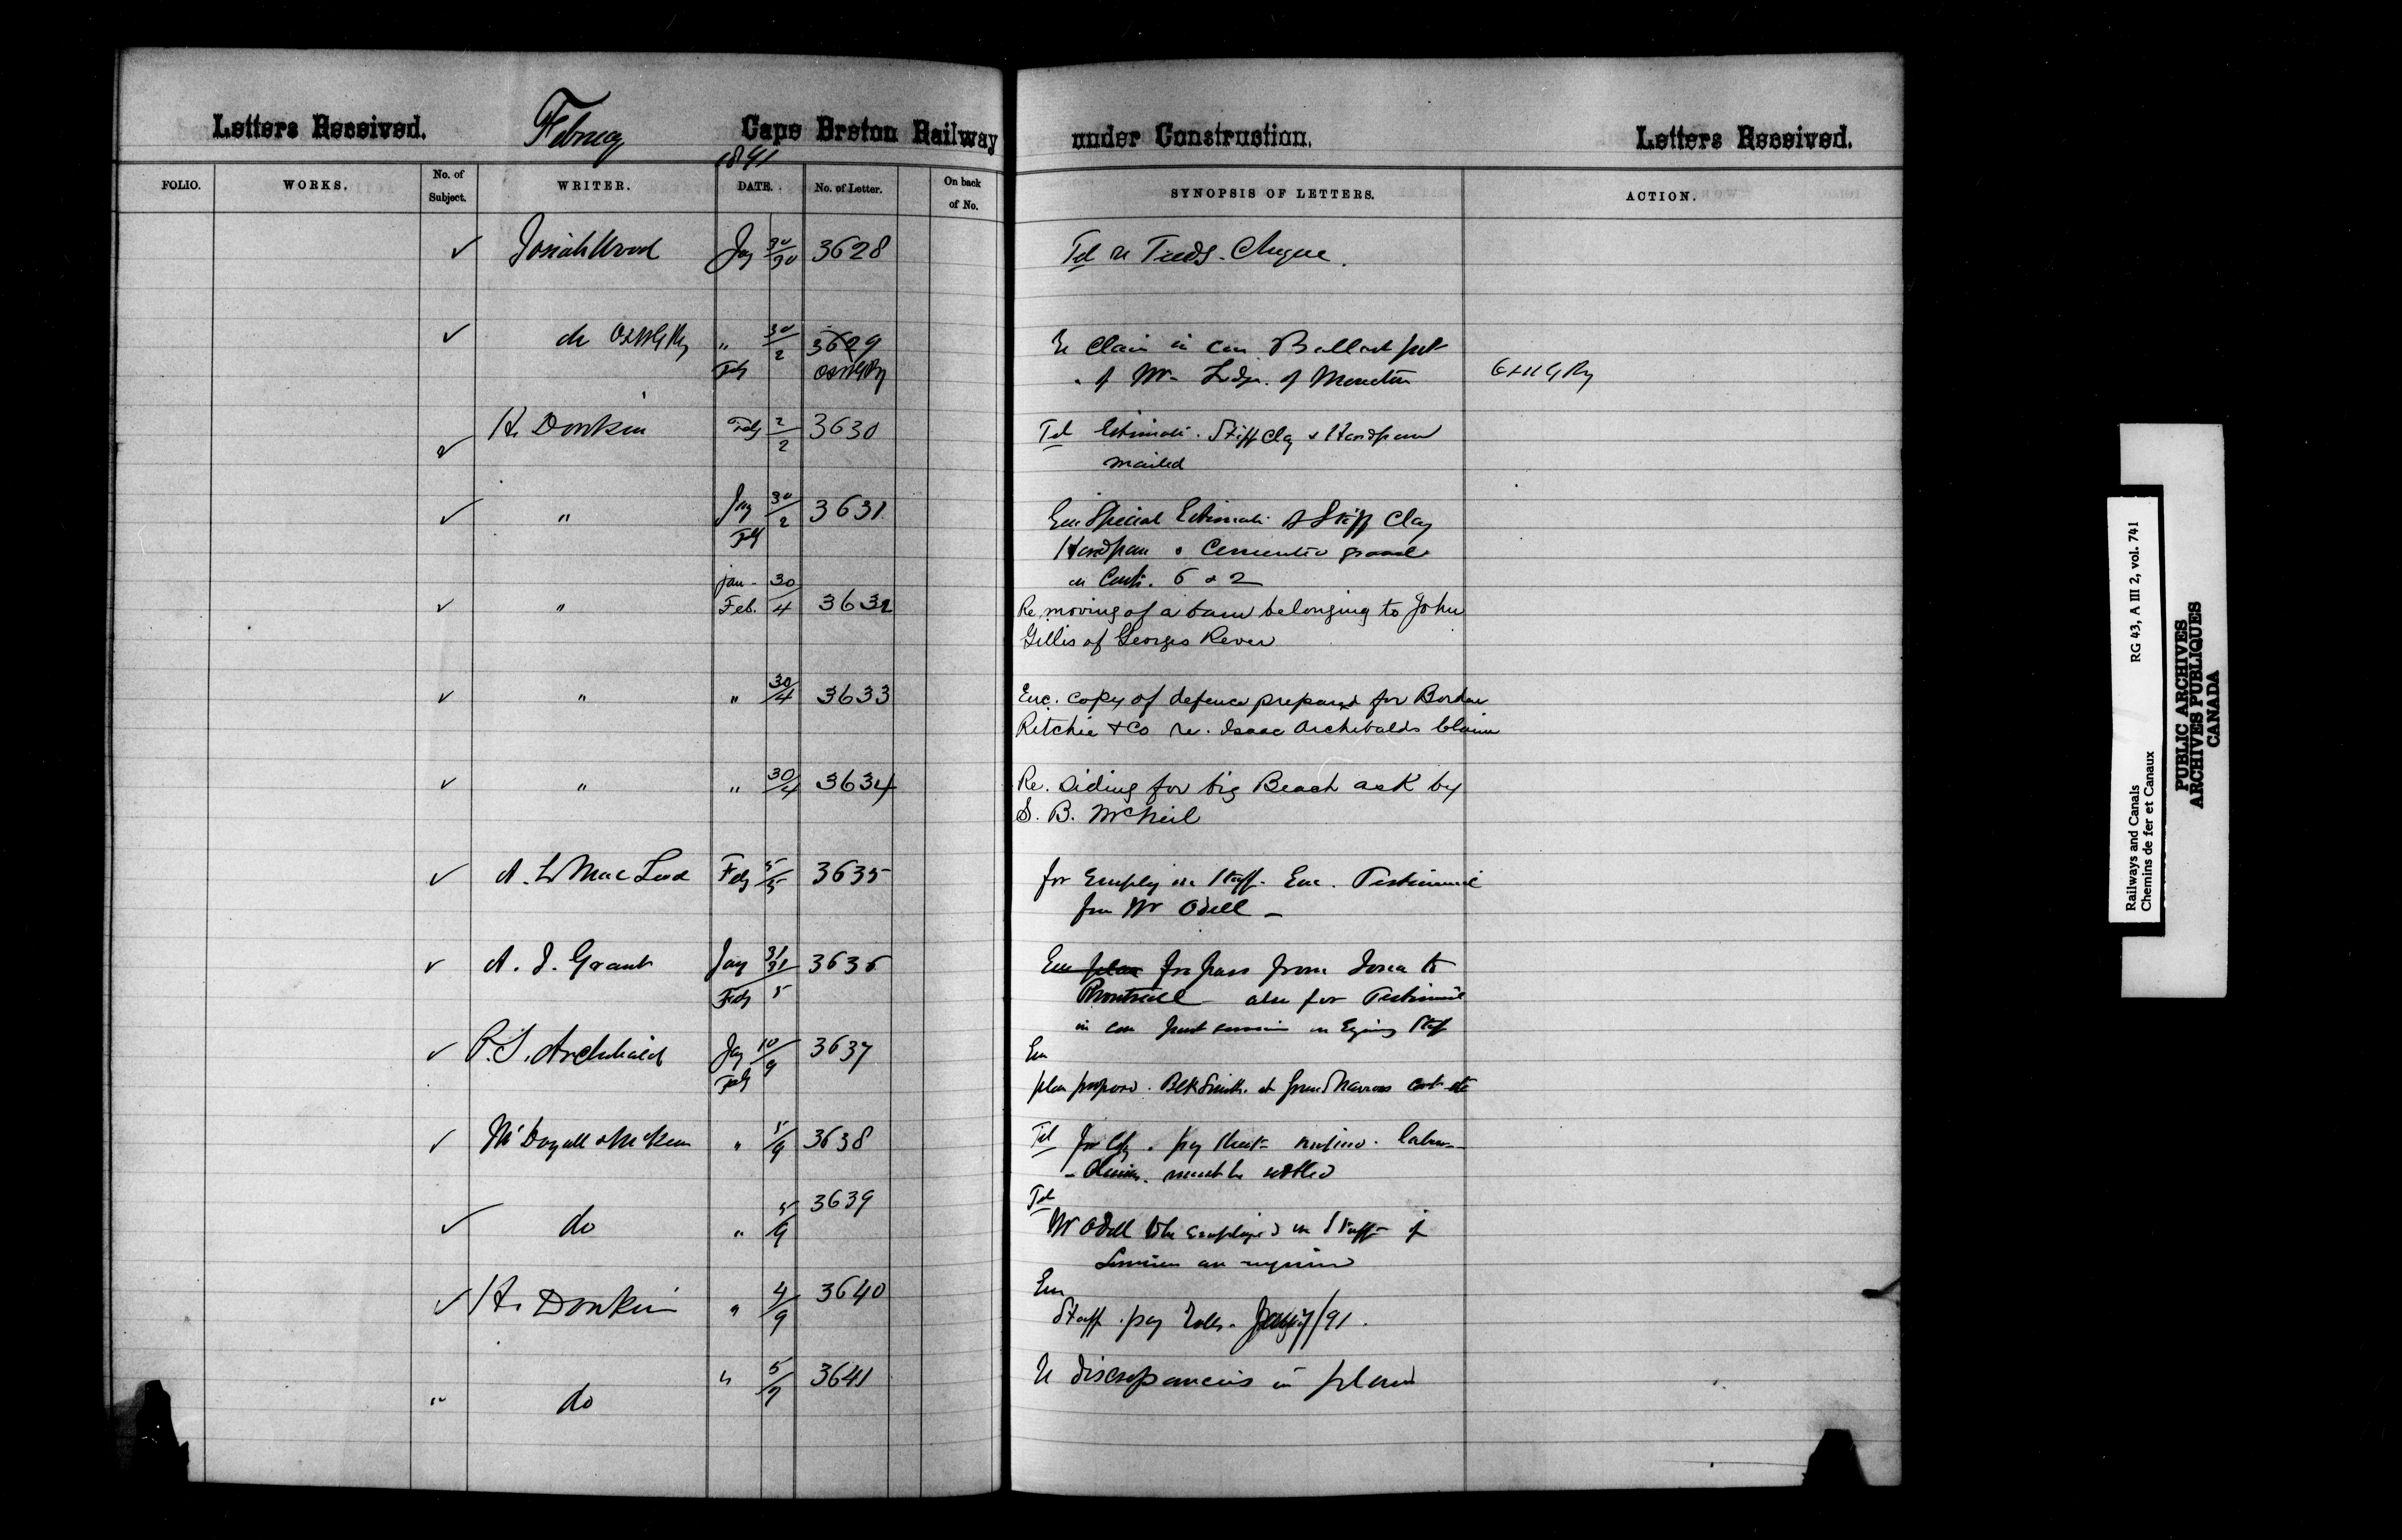 Letters Received.
Feby
Cape Breton Railway
under Construction.
Letters Received.
1891
FOLIO.
WORKS.
No. of Subject.
WRITER.
DATE.
No. of Letter.
On back of No.
SYNOPSIS OF LETTERS.
ACTION.
✓ Josiah Wood Jany 30/30 3628 Tel re Cheque.
✓ do O&NGRy " 30/2 3629 Re Claim in con Ballast pit
Feby of Mr of Moncton
✓ H. Donkin Feby 2/2 3630 Tel Estimate. Stiff Clay & Hardpan
mailed
✓ " Jany 30/2 3631 Enc Special Estimate of Stiff Clay
Feby Hardpan & Cemented gravel
Jan - 30 on Contr. 6 & 2
✓ " Feb. 4 3632 Re. moving of a barn belonging to John
Gillis of Georges River
✓ " " 30/4 3633 Enc. copy of defence prepared for Borden
Ritchie & Co re. Isaac Archibalds Claim
✓ " " 30/4 3634 Re. Siding for big Beach ask by
S. B. McNeil
✓ A. L. MacLeod Feby 5/5 3635 for Employ on Staff. Enc. Testimonial
from Mr Odell -
✓ A. J. Grant Jany 31/91 3636 Enc plan for pass from Iona to
Feby 5 Montreal also for Testimonial
in con past service on Staff
✓ P. S. Archibald Jany 10/9 3637 Enc
Feby plan proposed. Blk Smith. at Grand Narrows cost etc
✓ McDougall & McKeen " 5/9 3638 Tel for Copy. pay sheet
Claims. must be settled
✓ do " 5/9 3639 Tel
Mr Odell to be employed on Staff if
Services are required
✓ H. Donkin " 4/9 3640 Enc
Staff pay rolls. Jany/91.
" do " 5/9 3641 Re discrepancies in plans
Railways and Canals RG 43, A III 2, vol. 741
Chemins de fer et Canaux
PUBLIC ARCHIVES
ARCHIVES PUBLIQUES
CANADA